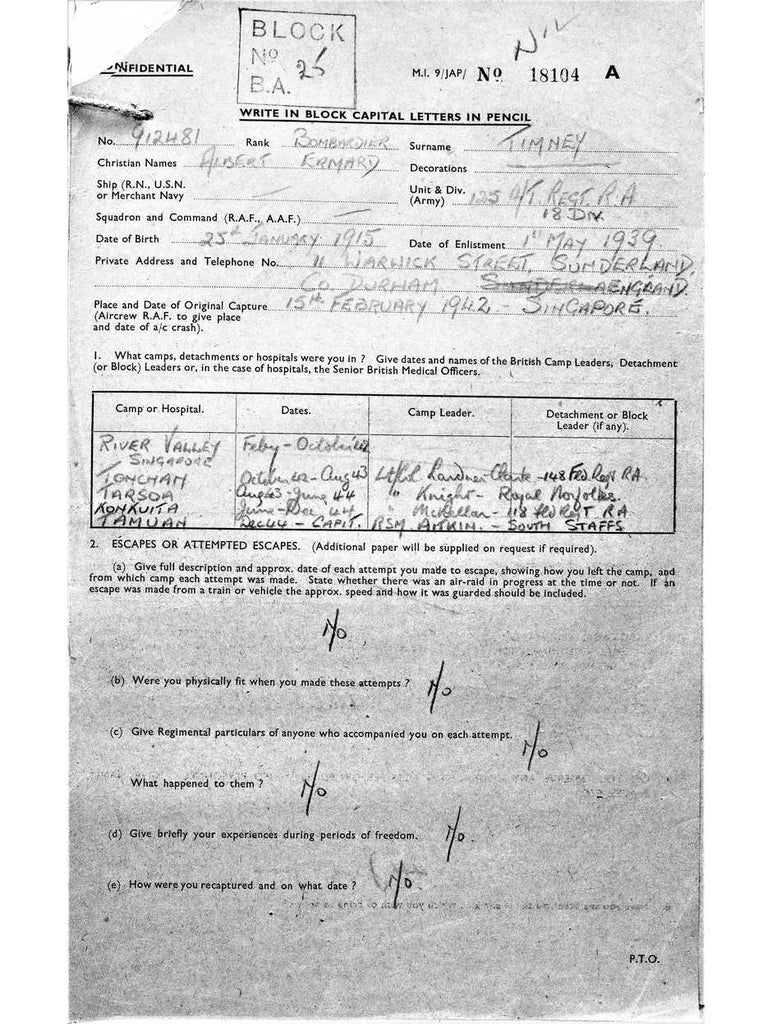 BLOCK
No 26
B.A.
NIL
CONFIDENTIAL
M.I. 9/JAP/ No 18104 A
WRITE IN BLOCK CAPITAL LETTERS IN PENCIL
No. 912481 Rank BOMBARDIER Surname TIMNEY
Christian Names ALBERT ERMARD Decorations
Ship (R.N., U.S.N. or Merchant Navy —
Unit & Div. (Army) 125 A/T. REGT. R.A
18 DIV.
Squadron and Command (R.A.F., A.A.F.) —
Date of Birth 25th JANUARY 1915 Date of Enlistment 1st MAY 1939
Private Address and Telephone No. 11 WARWICK STREET, SUNDERLAND.
CO. DURHAM ENGLAND.
Place and Date of Original Capture 15th FEBRUARY 1942 - SINGAPORE.
(Aircrew R.A.F. to give place
and date of a/c crash).
1. What camps, detachments or hospitals were you in ? Give dates and names of the British Camp Leaders, Detachment
(or Block) Leaders or, in the case of hospitals, the Senior British Medical Officers.
Camp or Hospital. Dates. Camp Leader. Detachment or Block Leader (if any).
RIVER VALLEY Feby - October 42
SINGAPORE
TONCHAN October 42 - Aug 43 Lt/Col. Lardner-Clarke - 148 Fld Regt RA
TARSOA Aug 43 - June 44 " Knight - Royal Norfolks.
KONKUITA June - Dec 44 " McKellan - 118 Fld Regt RA
TAMUAN Dec 44 - CAPIT. RSM. AITKIN. - SOUTH STAFFS
2. ESCAPES OR ATTEMPTED ESCAPES. (Additional paper will be supplied on request if required).
(a) Give full description and approx. date of each attempt you made to escape, showing how you left the camp, and
from which camp each attempt was made. State whether there was an air-raid in progress at the time or not. If an
escape was made from a train or vehicle the approx. speed and how it was guarded should be included.
No
(b) Were you physically fit when you made these attempts ? No
(c) Give Regimental particulars of anyone who accompanied you on each attempt. No
What happened to them ? No
(d) Give briefly your experiences during periods of freedom. No.
(e) How were you recaptured and on what date ? No.
P.T.O.